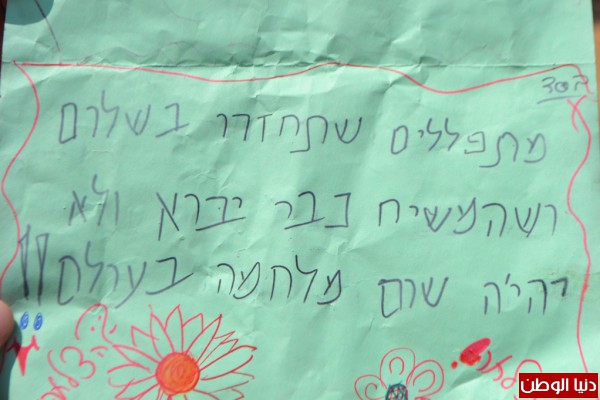 בסד
מתפללים שתחזרו בשלום
ושהמשיח כבר יבוא ולא
יהיה שום מלחמה בעולם!!
دنيا الوطن